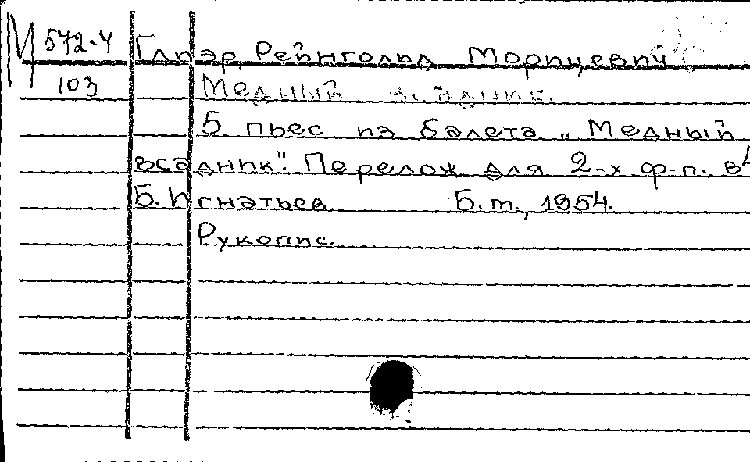 М 572-4 Глиэр, Рейнгольд Морицевич
103 Медный всадник.
5 пьес из балета „Медный
всадник". Перелож для 2-х ф-п. в4
Б. Игнатьев Б.т., 1954.
Рукопис.